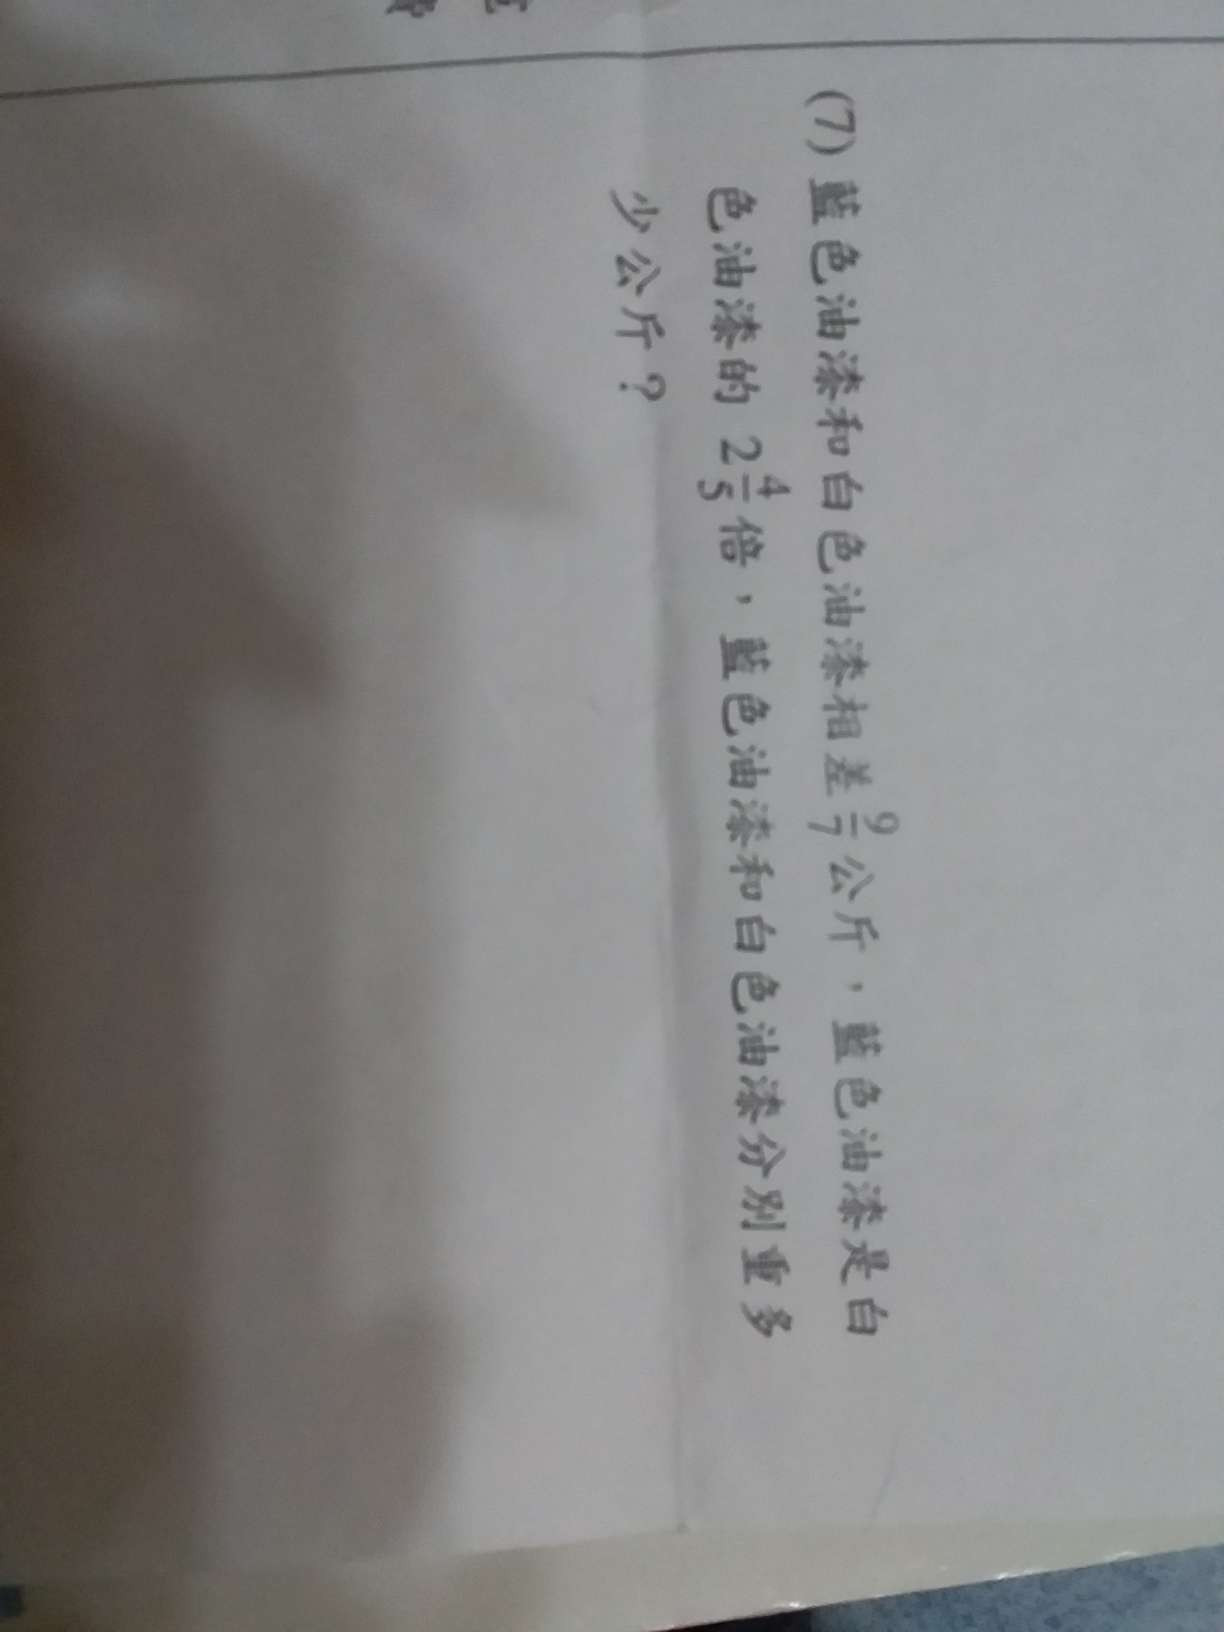 (7) 藍色油漆和白色油漆相差 9/7 公斤，藍色油漆是白
色油漆的 2 4/5 倍，藍色油漆和白色油漆分別重多
少公斤？